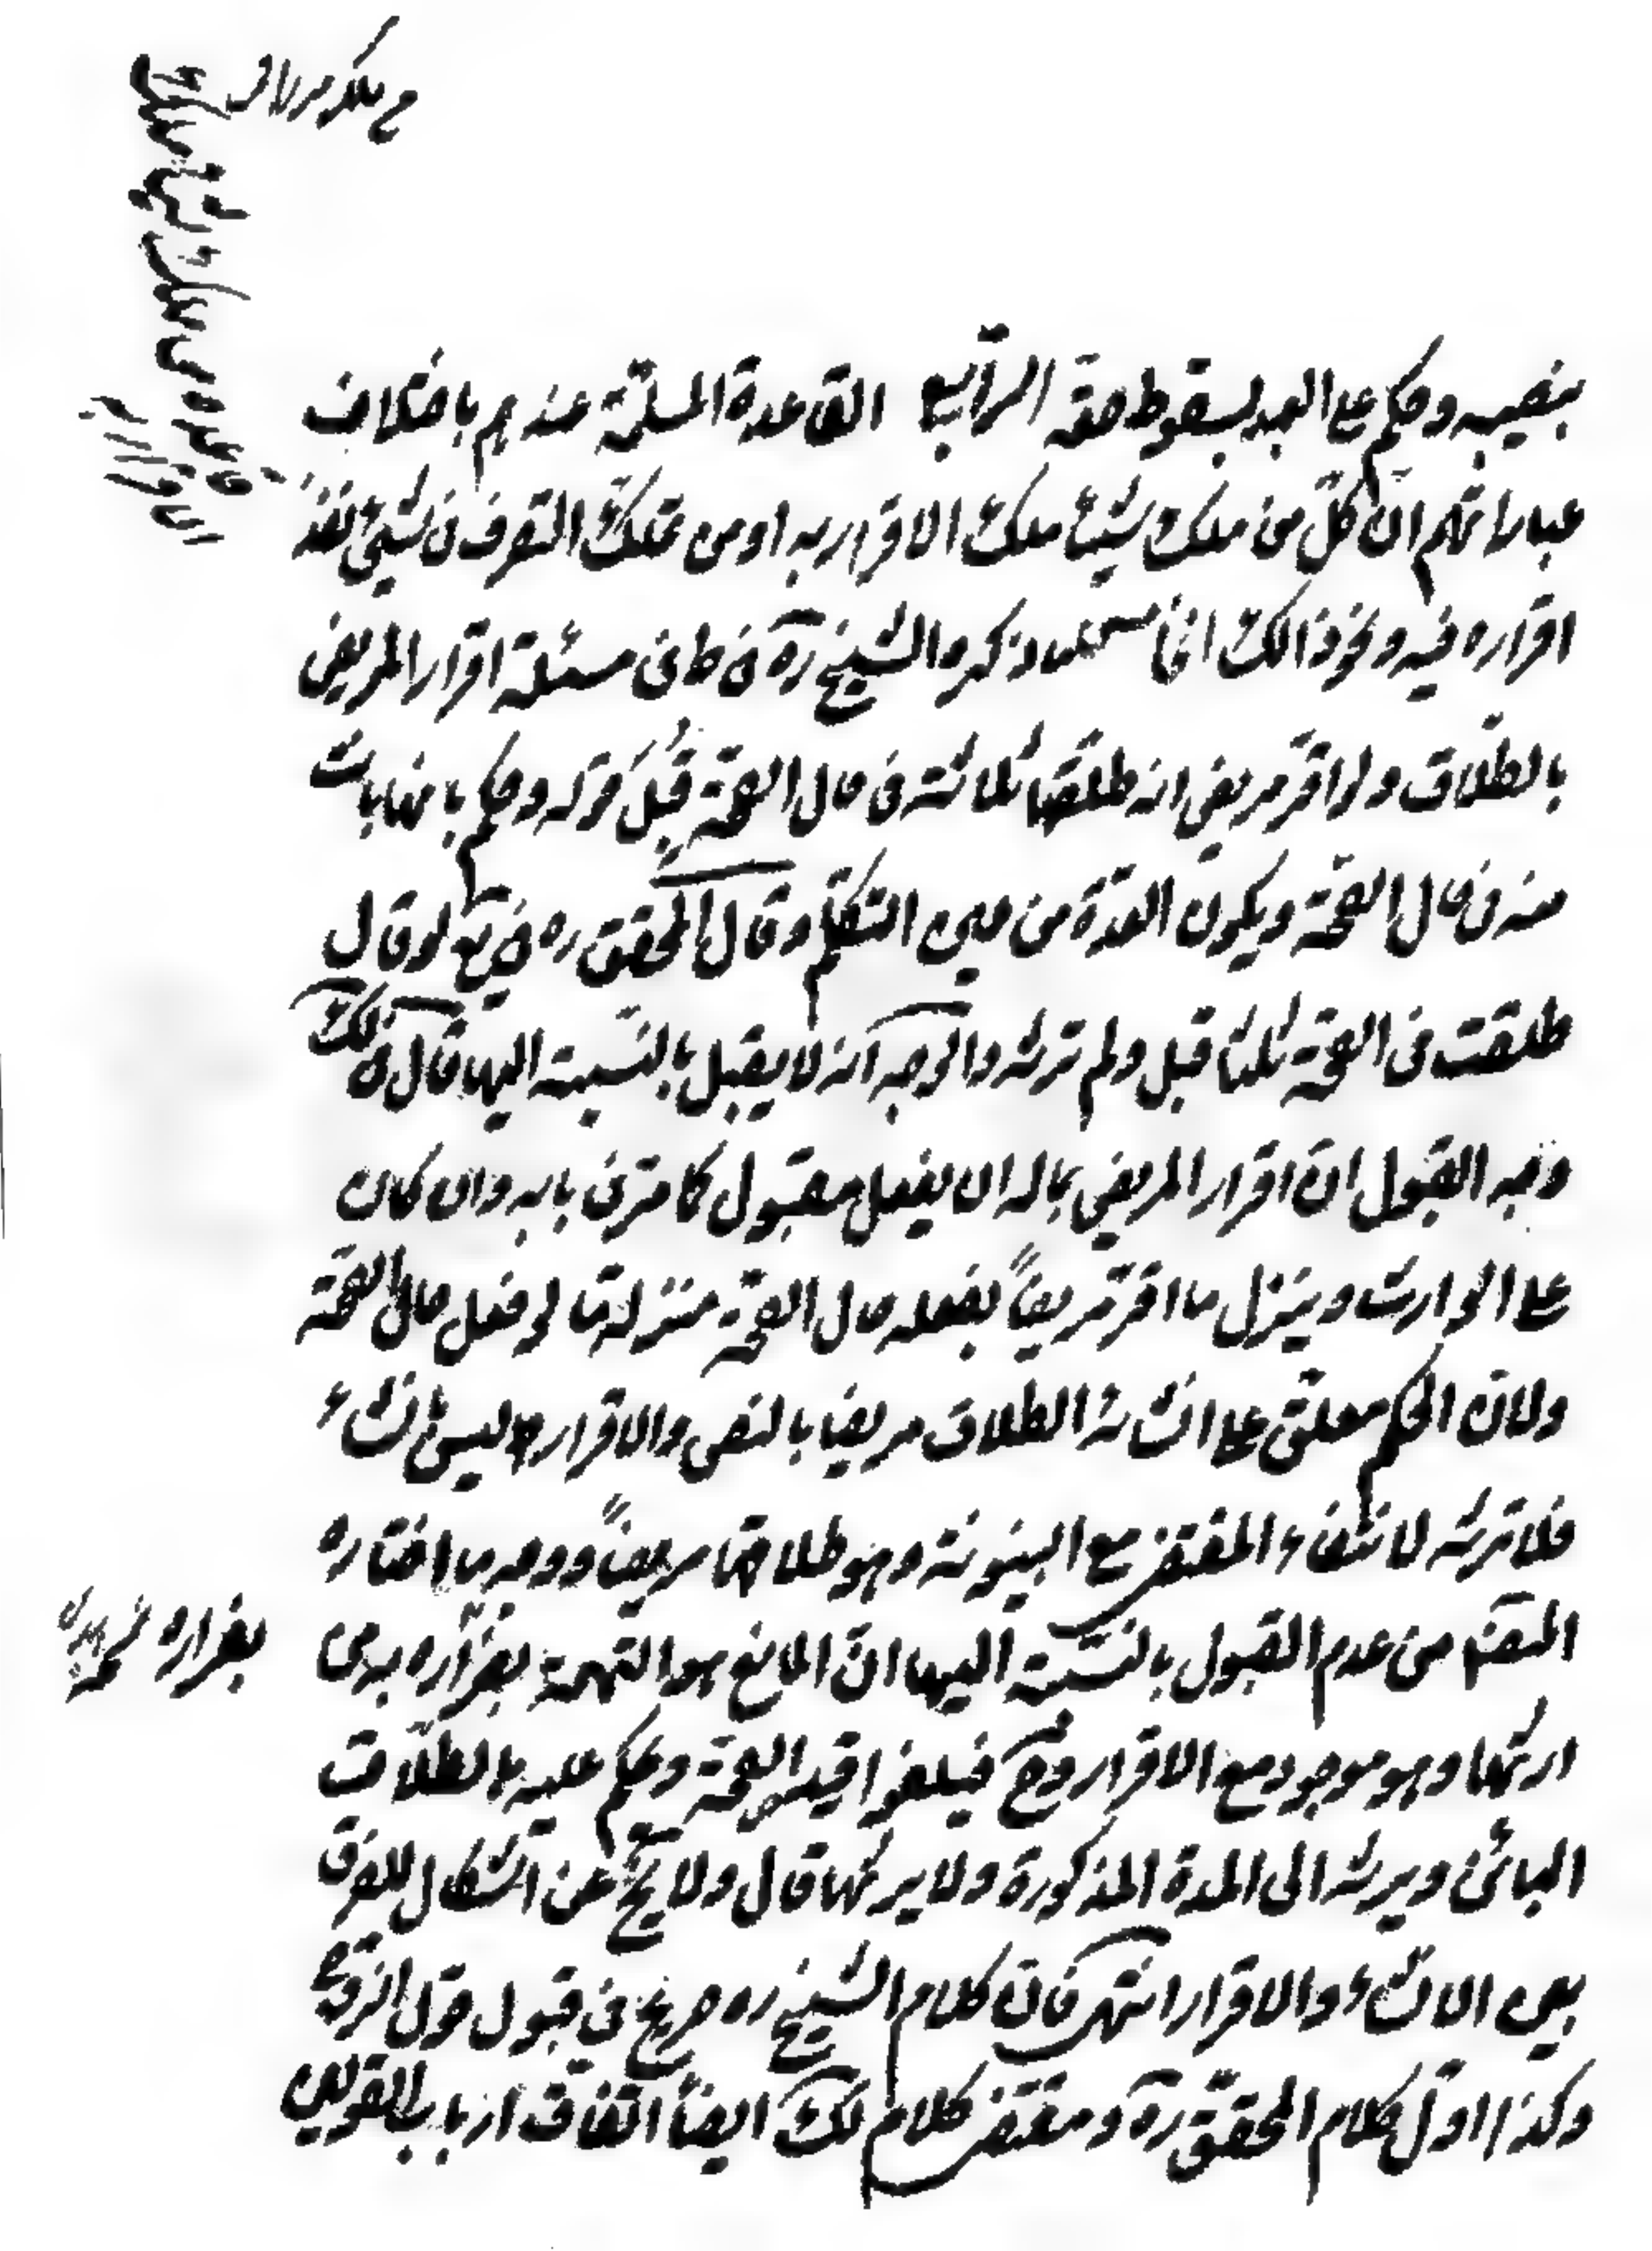 بنصيبه وحكم على العبد بسقوط حقه الرابع القاعدة المسلمة عندهم باختلاف
عباراتهم ان كل من ملك شيئا ملك الاقرار به او من تملك التصرف في شيئ نفذ
اقراره فيه ونحو ذالك الخامس ما ذكره الشيخ ره في ط في مسئلة اقرار المريض
بالطلاق ولو اقر مريض انه طلقها ثلاثة في حال الصحة قبل قوله وحكم بانها بانت
منه في حال الصحة ويكون العدة من حين التكلم وقال المحقق ره في يع لو قال
طلقت في الصحة ثلثا قبل ولم ترثه والوجه انه لا يقبل بالنسبة اليها قال في لك
وجه القبول ان اقرار المريض بماله ان يفعل مقبول كما مر في بابه وان كان
على الوارث وينزل ما اقر مريضاً بفعله حال الصحة منزلة ما لو فعل حال الصحة
ولان الحكم معلق على انشائه الطلاق مريضا بالنص والاقرار ليس بانشاء
فلا ترثه لانتفاء المقتضى مع البينونة وهو طلاقها مريضاً ووجه ما اختاره
المصنف من عدم القبول بالنسبة اليها ان المانع هو التهمة بفراره بها من
ارثها وهو موجود مع الاقرار وح فيلغوا قيد الصحة ويحكم عليه بالطلاق
البائن ويرثه الى المدة المذكورة ولا يرثها قال ولا يخ عن اشكال للفرق
بين الانشاء والاقرار انتهى فان كلام الشيخ ره صريح في قبول قول الزوج
وكذا اول كلام المحقق ره ومقتضى كلام لك ايضاً اتفاق ارباب القولين
بفراره